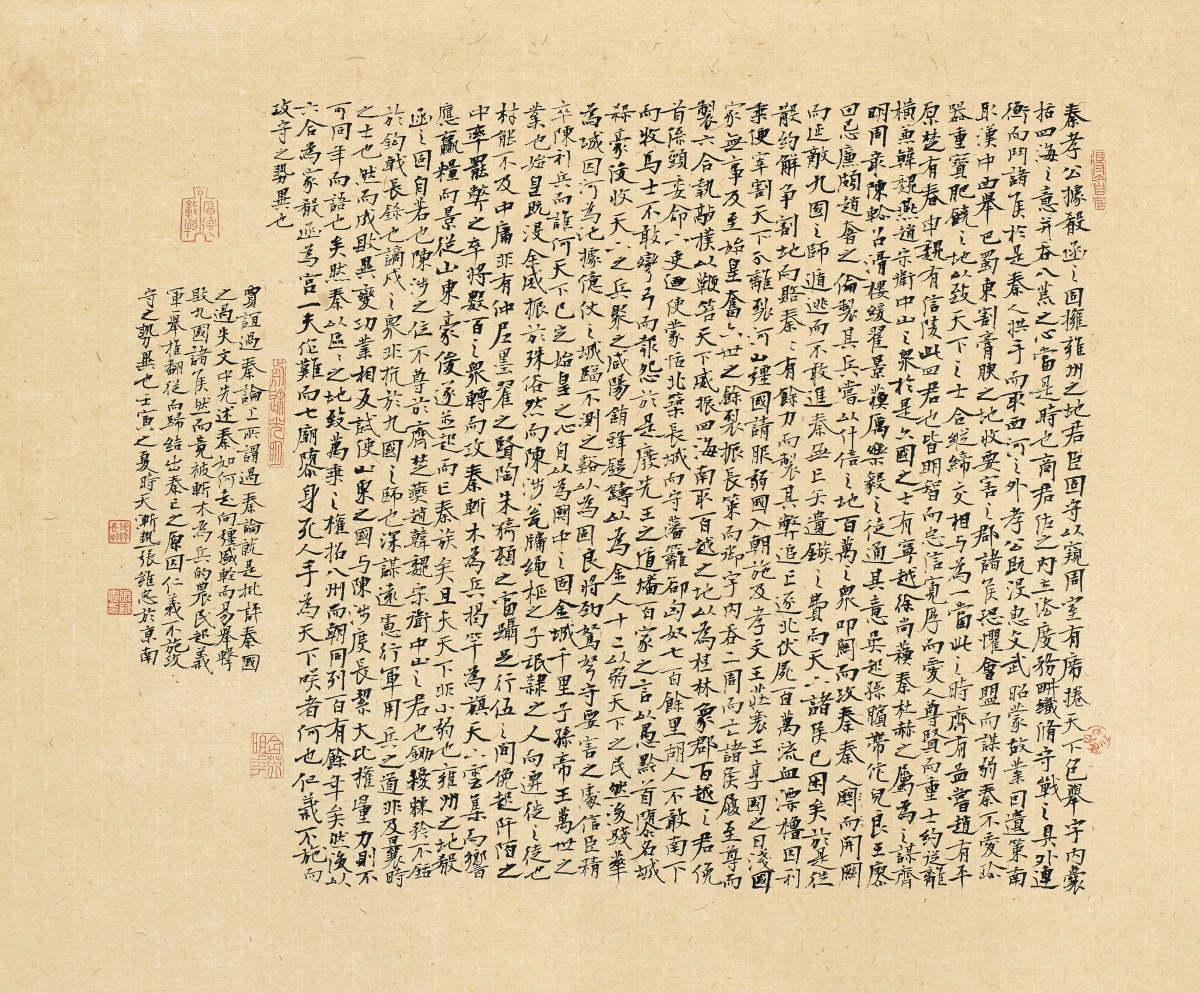 秦孝公據殽函之固擁雍州之地君臣固守以窺周室有席捲天下包舉宇內囊
括四海之意并吞八荒之心當是時也商君佐之內立法度務耕織脩守戰之具外連
衡而鬥諸侯於是秦人拱手而取西河之外孝公既沒惠文武昭蒙故業因遺策南
取漢中西舉巴蜀東割膏腴之地收要害之郡諸侯恐懼會盟而謀弱秦不愛珍
器重寶肥饒之地以致天下之士合縱締交相与為一當此之時齊有孟嘗趙有平
原楚有春申魏有信陵此四君也皆明智而忠信寬厚而愛人尊賢而重士約從離
橫兼韓魏燕趙宋衛中山之眾於是六國之士有寧越徐尚蘇秦杜赫之屬為之謀齊
明周最陳軫召滑樓緩翟景蘇厲樂毅之徒通其意吳起孫臏帶佗兒良王廖
田忌廉頗趙奢之倫製其兵嘗以什倍之地百萬之眾叩關而攻秦秦人開而開關
而延敵九國之師遁逃而不敢進秦無亡矢遺鏃之費而天下諸侯已困矣於是從
散約解爭割地而賂秦〻有餘力而製其弊追亡逐北伏屍百萬流血漂櫓因利
乘便宰割天下分離裂河山彊國請服弱國入朝施及孝文王莊襄王享國之日淺國
家無事及至始皇奮六世之餘裂振長策而御宇內吞二周而亡諸侯履至尊而
製六合執敲撲以鞭笞天下威振四海南取百越之地以為桂林象郡百越之君俛
首係頸委命下吏廼使蒙恬北築長城而守蕃籬卻匈奴七百餘里胡人不敢南下
而牧馬士不敢彎弓而報怨於是廢先王之道燔百家之言以愚黔首墮名城
殺豪俊收天下之兵聚之咸陽銷鋒鍉鑄以為金人十二以弱天下之民然後踐華
為城因河為池據億仗之城臨不測之谿以為固良將勁駑弩守要害之處信臣精
卒陳利兵而誰何天下已定始皇之心自以為關中之固金城千里子孫帝王萬世之
業也始皇既沒余威振於殊俗然而陳涉瓮牖繩樞之子氓隸之人而遷徙之徒也
材能不及中庸非有仲尼墨翟之賢陶朱猗頓之富躡足行伍之間俛起阡陌之
中率罷弊之卒將數百之眾轉而攻秦斬木為兵揭竿為旗天下雲集而響
應贏糧而景從山東豪俊遂並起而亡秦族矣且夫天下非小弱也雍州之地殽
函之固自若也陳涉之位不尊於齊楚燕趙韓魏宋衛中山之君也鋤櫌棘矜不銛
於鉤戟長鎩也謫戍之眾非抗於九國之師也深謀遠慮行軍用兵之道非及曩時
之士也然而成敗異變功業相反試使山東之國与陳涉度長絜大比權量力則不
可同年而語也矣然秦以區〻之地致萬乘之權招八州而朝同列百有餘年矣然後以
六合為家殽函為宮一夫作難而七廟隳身死人手為天下咲者何也仁義不施而
攻守之勢異也
賈誼過秦論上所謂過秦論就是批評秦國
之過失文中先述秦如何走向強盛輕而易舉擊
敗九國諸侯然而竟被斬木為兵的農民起義
軍一舉推翻從而歸結出秦亡之原因仁義不施攻
守之勢異也壬寅之夏時天漸熱張維忠於京南